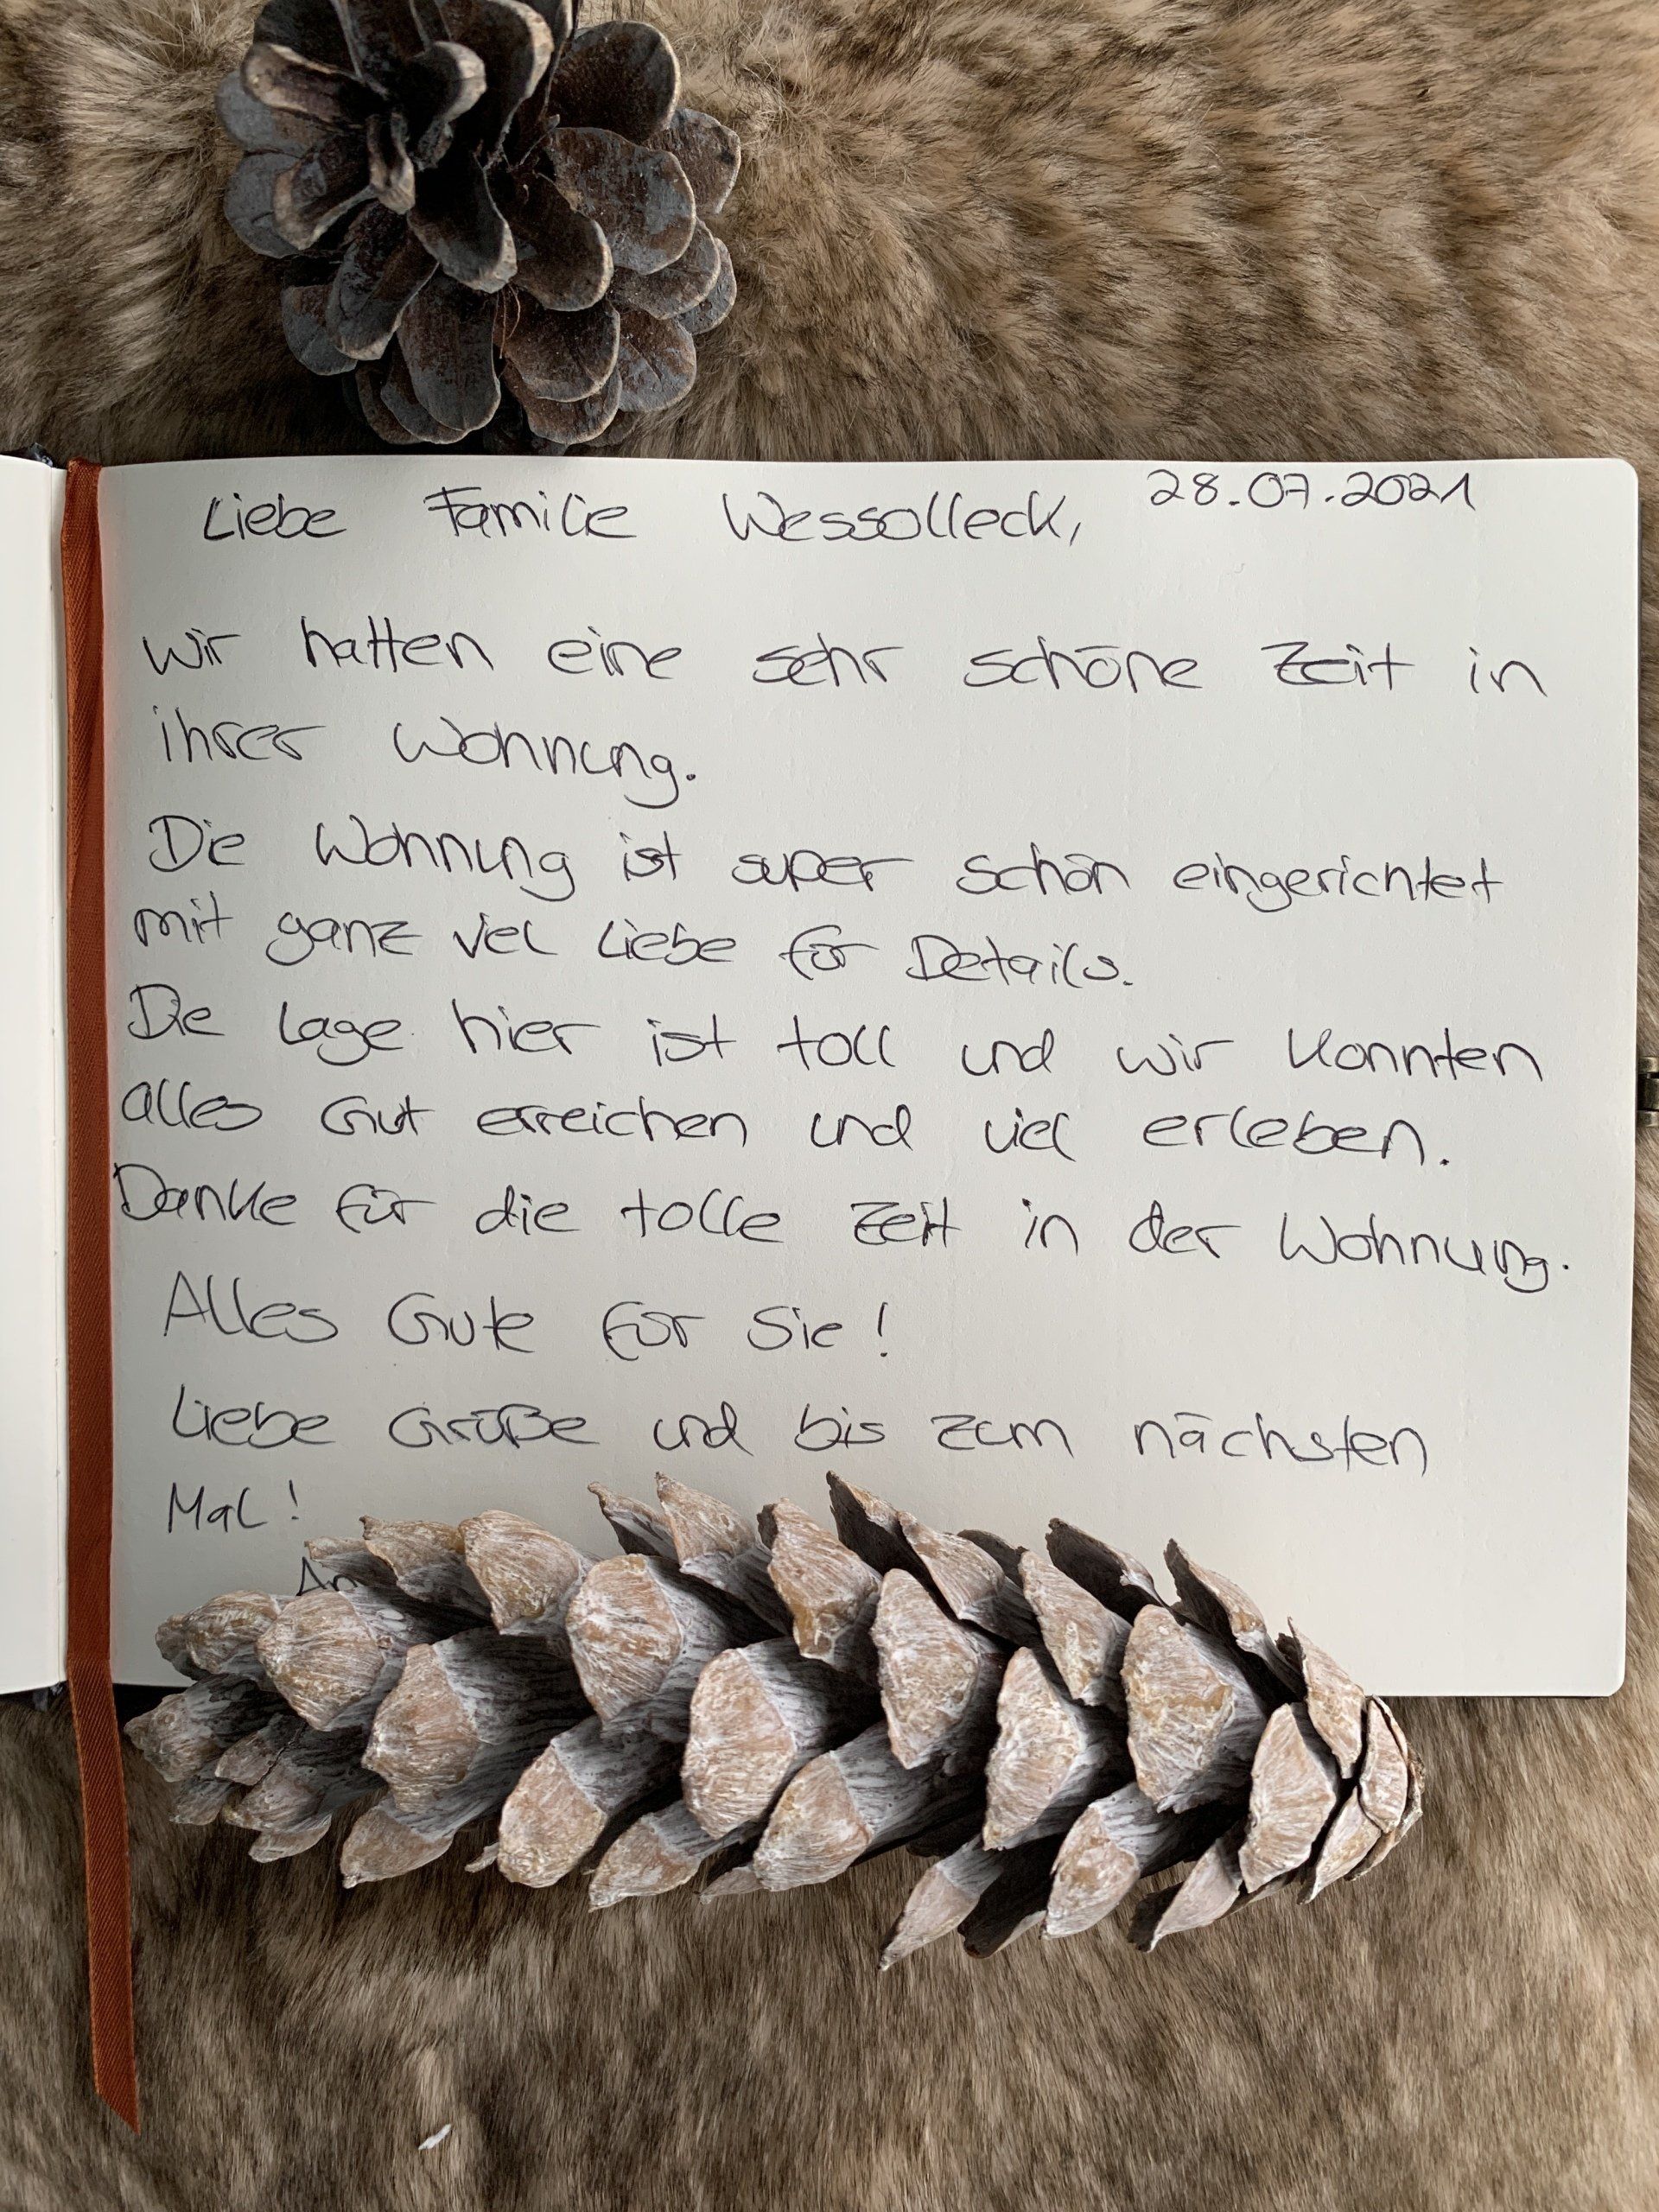 28.07.2021
Liebe Familie Wessolleck,
wir hatten eine sehr schöne Zeit in
ihrer Wohnung.
Die Wohnung ist super schön eingerichtet
mit ganz viel Liebe für Details.
Die Lage hier ist toll und wir konnten
alles Gut erreichen und viel erleben.
Danke für die tolle Zeit in der Wohnung.
Alles Gute für Sie!
Liebe Grüße und bis zum nächsten
Mal!